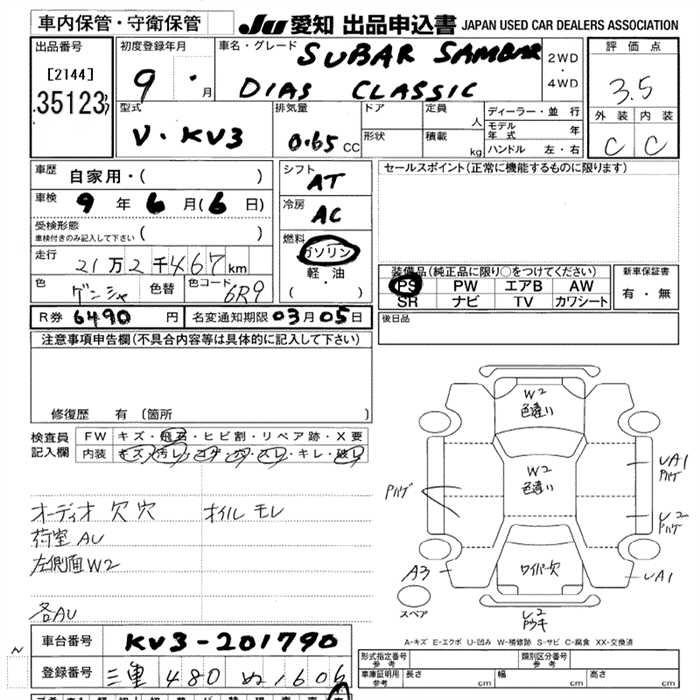 車内保管・守衛保管
JU 愛知 出品申込書 JAPAN USED CAR DEALERS ASSOCIATION
出品番号
[2144]
35123
初度登録年月
9 ・ 月
車名・グレード
SUBAR SAMBAR
DIAS CLASSIC
2WD
・
4WD
評価点
3.5
外装 内装
C C
型式
V・KV3
排気量
0.65 CC
ドア
形状
定員
人
積載
kg
ディーラー・並行
モデル年式 年
ハンドル 左・右
車歴
自家用・( )
車検
9 年 6 月(6 日)
受検形態
車検付きのみ記入して下さい ( )
走行
21万2千467km
色
ゲンシャ
色替
色コード
6R9
シフト
AT
冷房
AC
燃料
ガソリン
軽・油
( ・ )
セールスポイント(正常に機能するものに限ります)
装備品(純正品に限り○をつけてください)
PS PW エアB AW
SR ナビ TV カワシート
新車保証書
有・無
R券 6490 円
名変通知期限 03月05日
後日品
注意事項申告欄(不具合内容等は具体的に記入して下さい)
修復歴 有 〔箇所
検査員記入欄
FW キズ・飛石・ヒビ割・リペア跡・X要
内装
オーディオ欠穴 オイルモレ
荷室AU
左側面W2
各AU
W2
色違い
W2
色違い
Pハゲ
UA1
Pハゲ
U2
Pハゲ
A3
ワイパー欠
UA1
スペア
U2
A-キズ E-エクボ U-凹み W-補修跡 S-サビ C-腐食 XX-交換済
N
車台番号 KV3-201790
登録番号 三重 480 ぬ1606
形式指定番号
参考
類別区分番号
参考
車庫証明用
参考
長さ cm 幅 cm 高さ cm